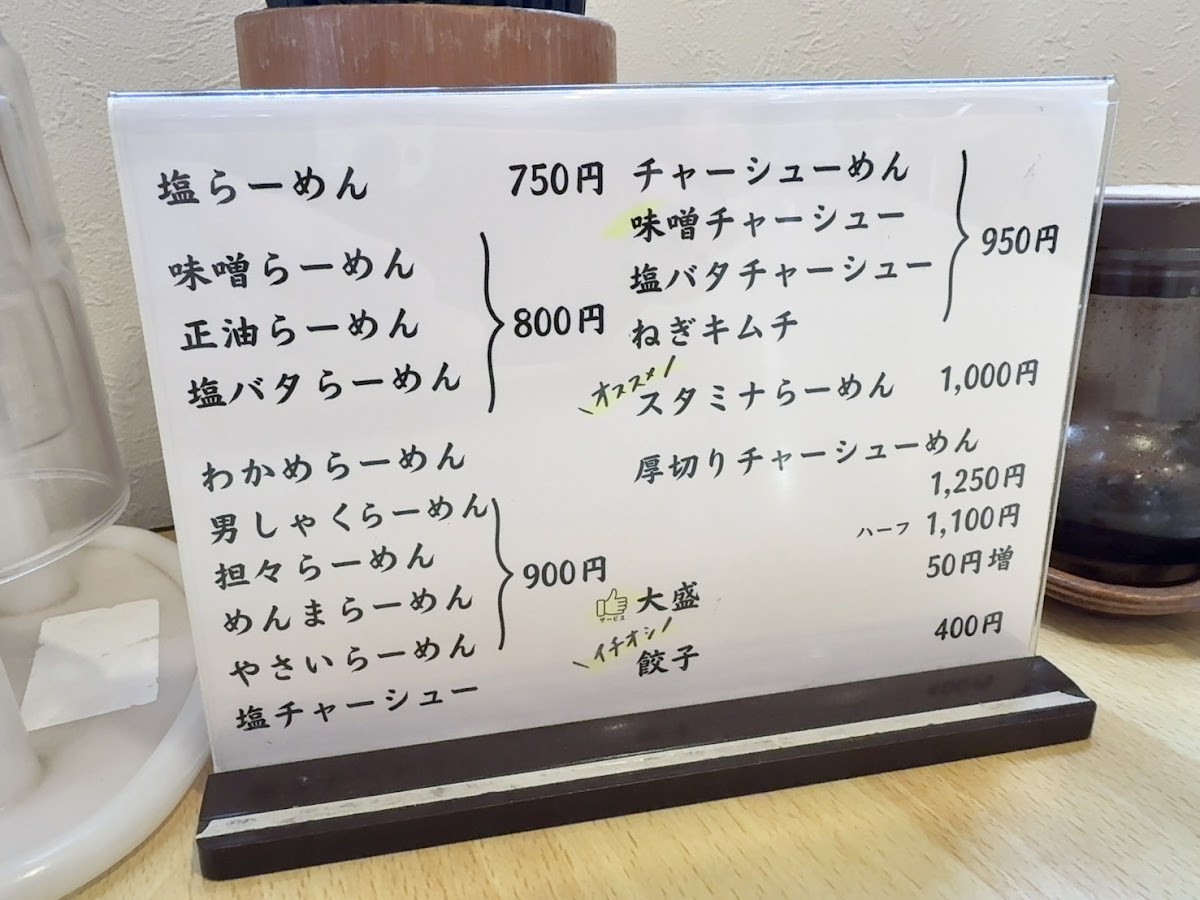 塩らーめん 750円
味噌らーめん
正油らーめん
塩バタらーめん
800円
わかめらーめん
男しゃくらーめん
担々らーめん
めんまらーめん
やさいらーめん
塩チャーシュー
900円
チャーシューめん
味噌チャーシュー
塩バタチャーシュー
ねぎキムチ
950円
オススメ!
スタミナらーめん 1,000円
厚切りチャーシューめん
1,250円
ハーフ 1,100円
50円増
サービス
大盛
イチオシ!
餃子 400円